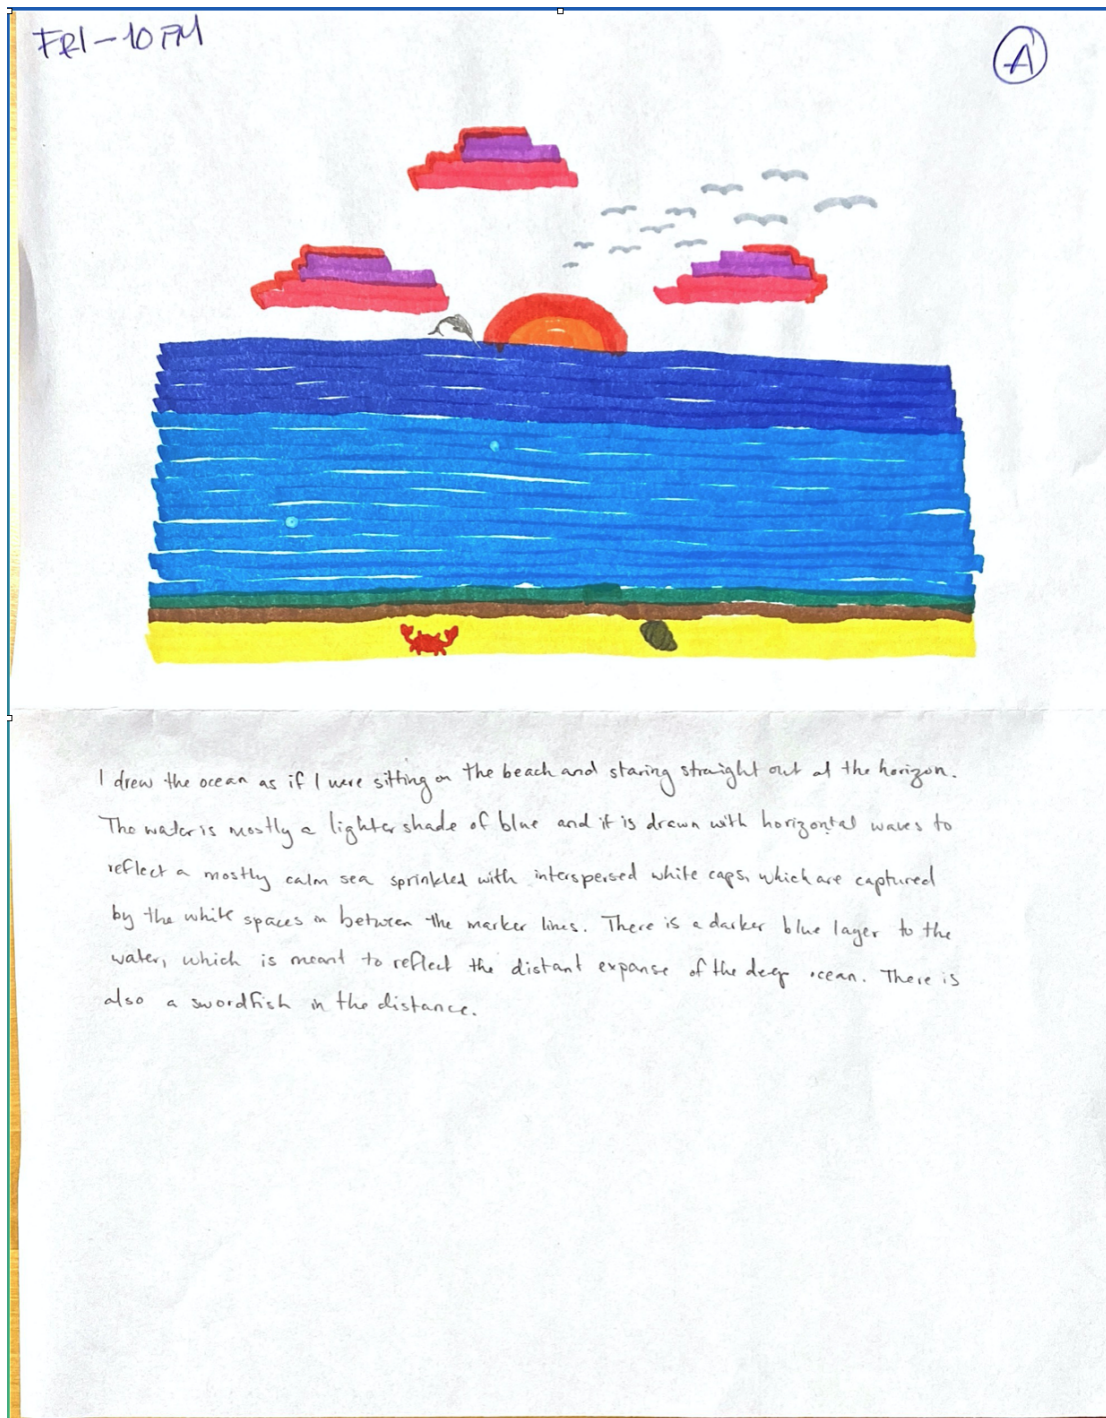 FRI - 10 PM
A
I drew the ocean as if I were sitting on the beach and staring straight out at the horizon.
The water is mostly a lighter shade of blue and it is drawn with horizontal waves to
reflect a mostly calm sea sprinkled with interspersed white caps, which are captured
by the white spaces in between the marker lines. There is a darker blue layer to the
water, which is meant to reflect the distant expanse of the deep ocean. There is
also a swordfish in the distance.